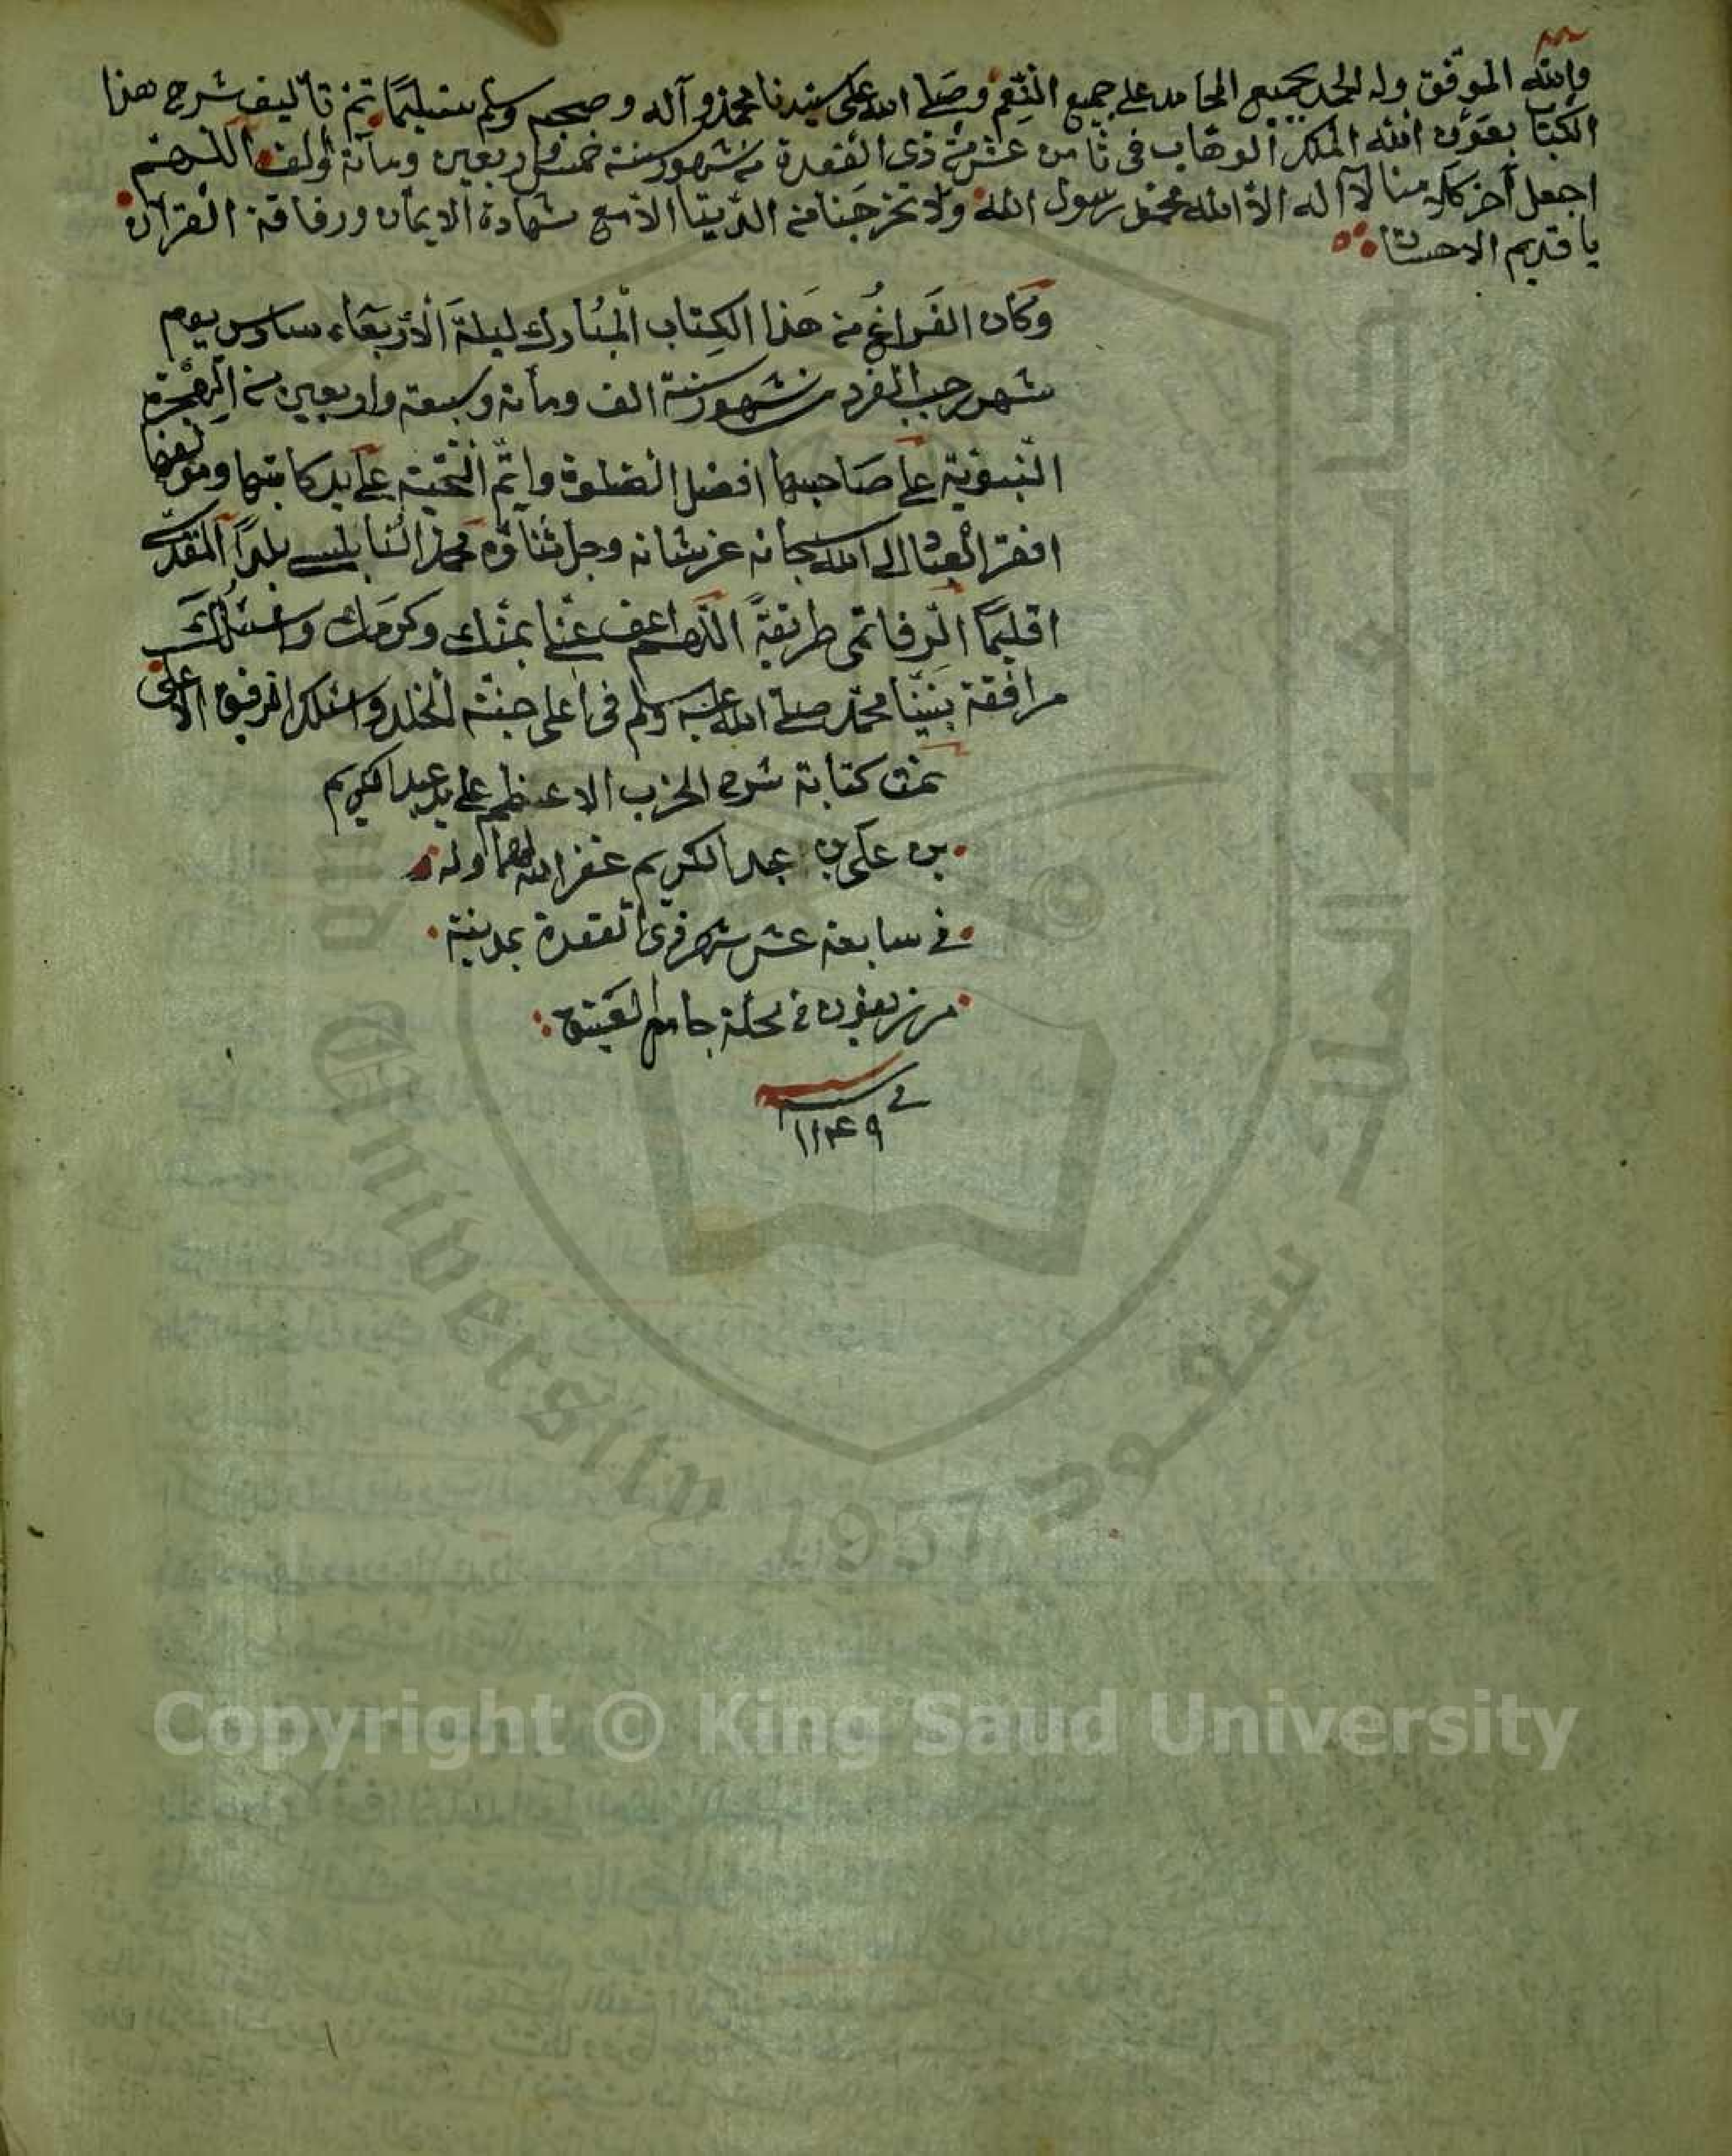 والله الموفق وله الحمد بجميع المحامد على جميع النعم وصلى الله على سيدنا محمد وآله وصحبه وسلم تسليمًا تم تأليف شرح هذا
الكتاب بعون الله الملك الوهاب في ثامن عشر من ذى القعدة من شهور سنة خمس واربعين ومأة وألف اللهم
اجعل آخر كلامنا لا آله الا الله محمد رسول الله ولا تخرجنا من الدنيا الا مع شهادة الايمان ورفاقة القرآن
يا قديم الاحسان
وكان الفراغ من هذا الكتاب المبارك ليلة الأربعاء سادس يوم
شهر رجب الفرد من شهور سنة الف ومأة وسبعة واربعين من الهجرة
النبوية على صاحبها افضل الصلوة واتم التحية على يد كاتبها ومؤلفها
افقر العباد الى الله سبحانه عز شانه وجل ثناؤه محمد النابلسي بلدًا المقدسي
اقليمًا طريقةً اللهم اعف عنا بمنك وكرمك واسئلك
مرافقة نبينا محمد صلى الله عليه وسلم في اعلى جنة الخلد واسئلك الرفيق الاعلى
نمق كتابة شرح الحزب الاعظم على يد عبد الكريم
بن على بن عبد الكريم غفر الله لهما وله
في سابعة عشر شهر ذى القعدة بمدينة
مرزيفون في محلة جامع العتيق
في سنة
١١٤٩
جامعة الملك سعود
University 1957
Copyright © King Saud University